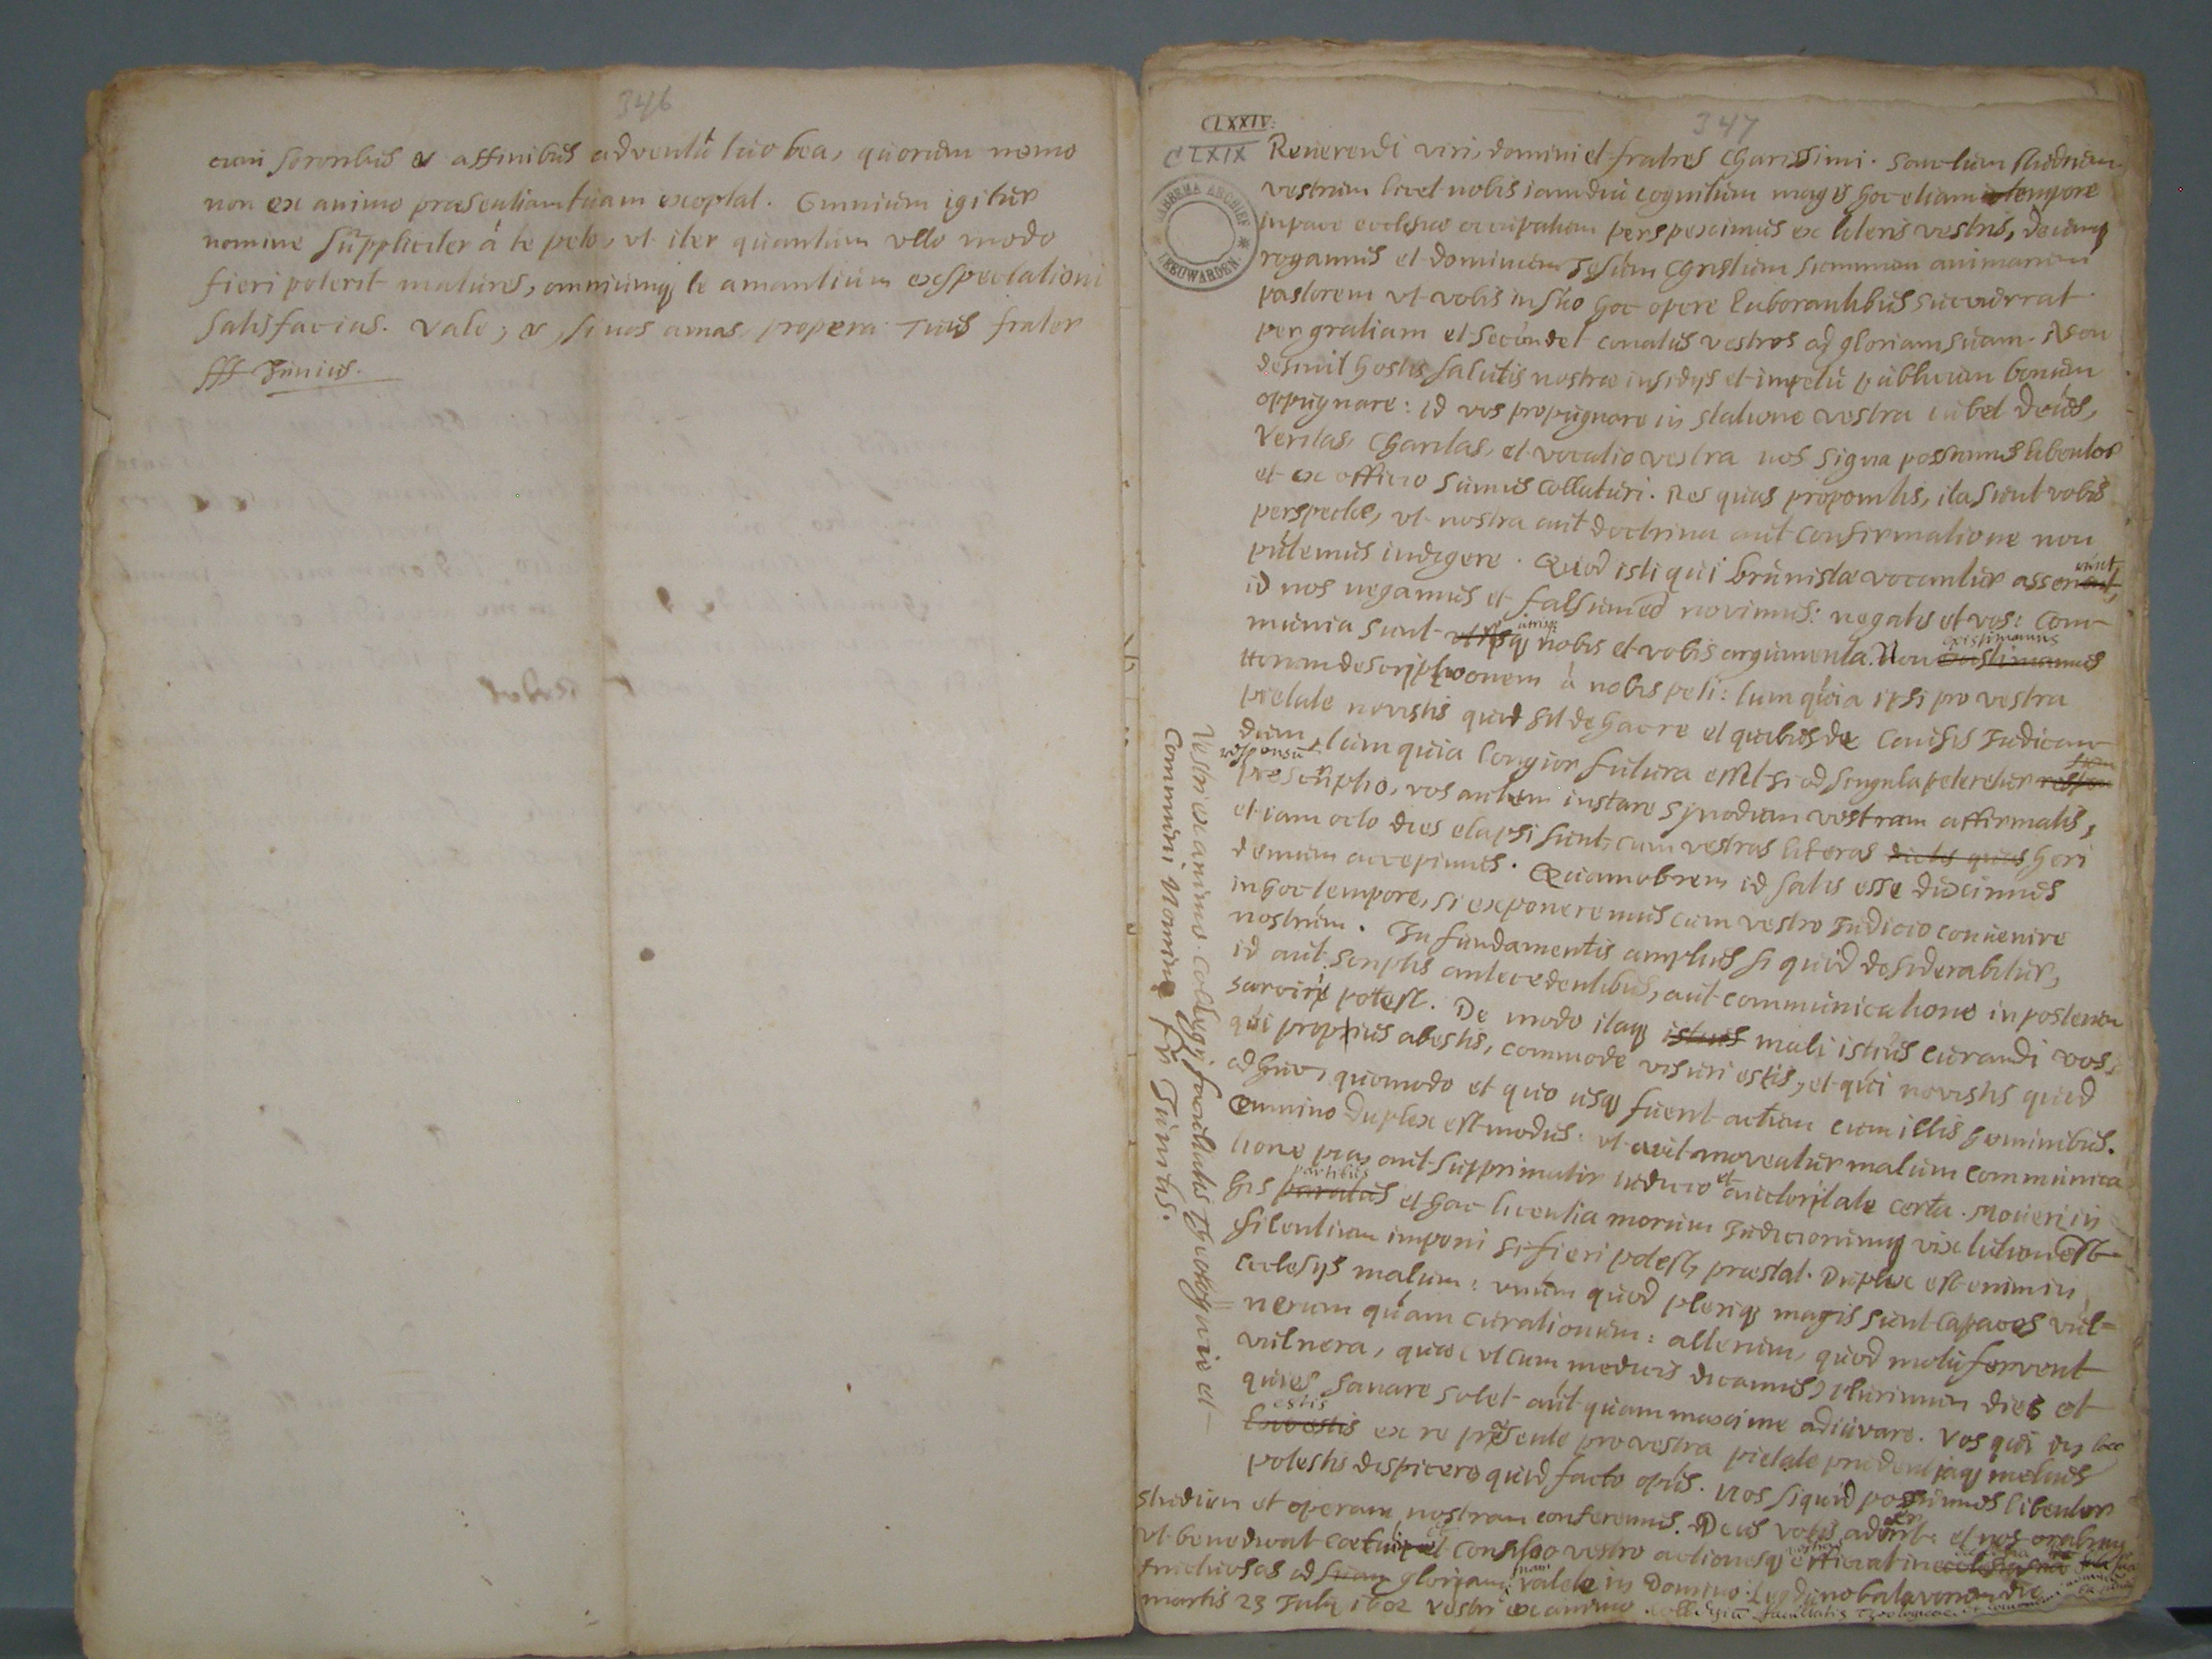 346
cum sororibus & affinibus adventu tuo bea, quorum nemo
non ex animo præsentiam tuam exoptat. Omnium igitur
nomine suppliciter à te peto, vt iter quantum vllo modo
fieri poterit matures, omniumq te amantium exspectationi
satisfacias. Vale, &, si nos amas, propera. Tuus frater
fff Junius.
347
CLXXIV.
CLXIX
GABBEMA ARCHIEF
LEEUWARDEN.
Reuerendi viri, domini et fratres charissimi. Sanctum studium
vestrum licet nobis iamdiu cognitum magis hoc etiam tempore
in pace ecclesiæ perspeximus ex literis vestris, Deumq
rogamus et dominum Jesum Christum summum animarum
pastorem vt vobis in suo hoc opere laborantibus succurrat
per gratiam et secundet conatus vestros ad gloriam suam. Non
desinit hostis salutis nostræ insidijs et impetu publicum bonum
oppugnare: id vos propugnare in statione vestra iubet Deus,
veritas, charitas, et vocatio vestra nos si qua possumus libenter
et ex officio sumus collaturi. Res quas proponitis, ita sunt vobis
perspectæ, vt nostra aut doctrina aut confirmatione non
putemus indigere. Quod isti qui brunistæ vocantur asserunt,
id nos negamus et falsum eê novimus: negatis et vos: com-
munia sunt utrisq nobis et vobis argumenta. Non existimamus
descriptionem à nobis peti: tum quia ipsi pro vestra
pietate novistis quid sit de hac re et quibus de causis judican-
dum, tum quia longior futura esset si ad singula peteretur responsu
prescriptio, vos autem instare synodum vestram affirmatis,
et iam octo dies elapsi sunt, cum vestras literas heri
demum accepimus. Quamobrem id satis esse diximus
in hoc tempore, si exponeremus cum vestro judicio convenire
nostrum. In fundamentis amplius si quid desiderabitur,
id aut scriptis antecedentibus, aut communicatione in posterum
sarciri potest. De modo itaq mali istius curandi vos,
qui propius abestis, commode visuri estis, et qui novistis quid
adhuc, quomodo et quo usq fuerit actum cum illis hominibus.
Omnino duplex est modus. vt aut moveatur malum communica
tione pia, aut supprimatur iudicio et auctoritate certa. Moueri in
his partibus et hac licentia morum judiciorumq vix tutum est
silentium imponi si fieri potest, præstat. Duplex est enim in
ecclesijs malum: vnum quod pleriq magis sunt capaces vul-
nerum quam curationum: alterum, quod motu fervent
vulnera, quæ (vt cum medicis dicamus) plurimum dies et
quies sanare solet aut quam maxime adiuvare. Vos qui in loco
estis ex re præsente pro vestra pietate prudentiaq melius
potestis dispicere quid facto opus. Nos si quid possumus libenter
studium et operam nostram conferemus. Deus vobis aderit: et nos orabimus
vt benedicat coetui et consilio vestro actionesq vestras efficiat in
fructuosas ad gloriam suam. Valete in Domino. Lugduno batavorum die
martis 23 Julij 1602 Vestri ex animo collegium facultatis Theologicæ et
Vestri ex animo. collegij facultatis Theologicæ et
communi nomine Fr. Junius.